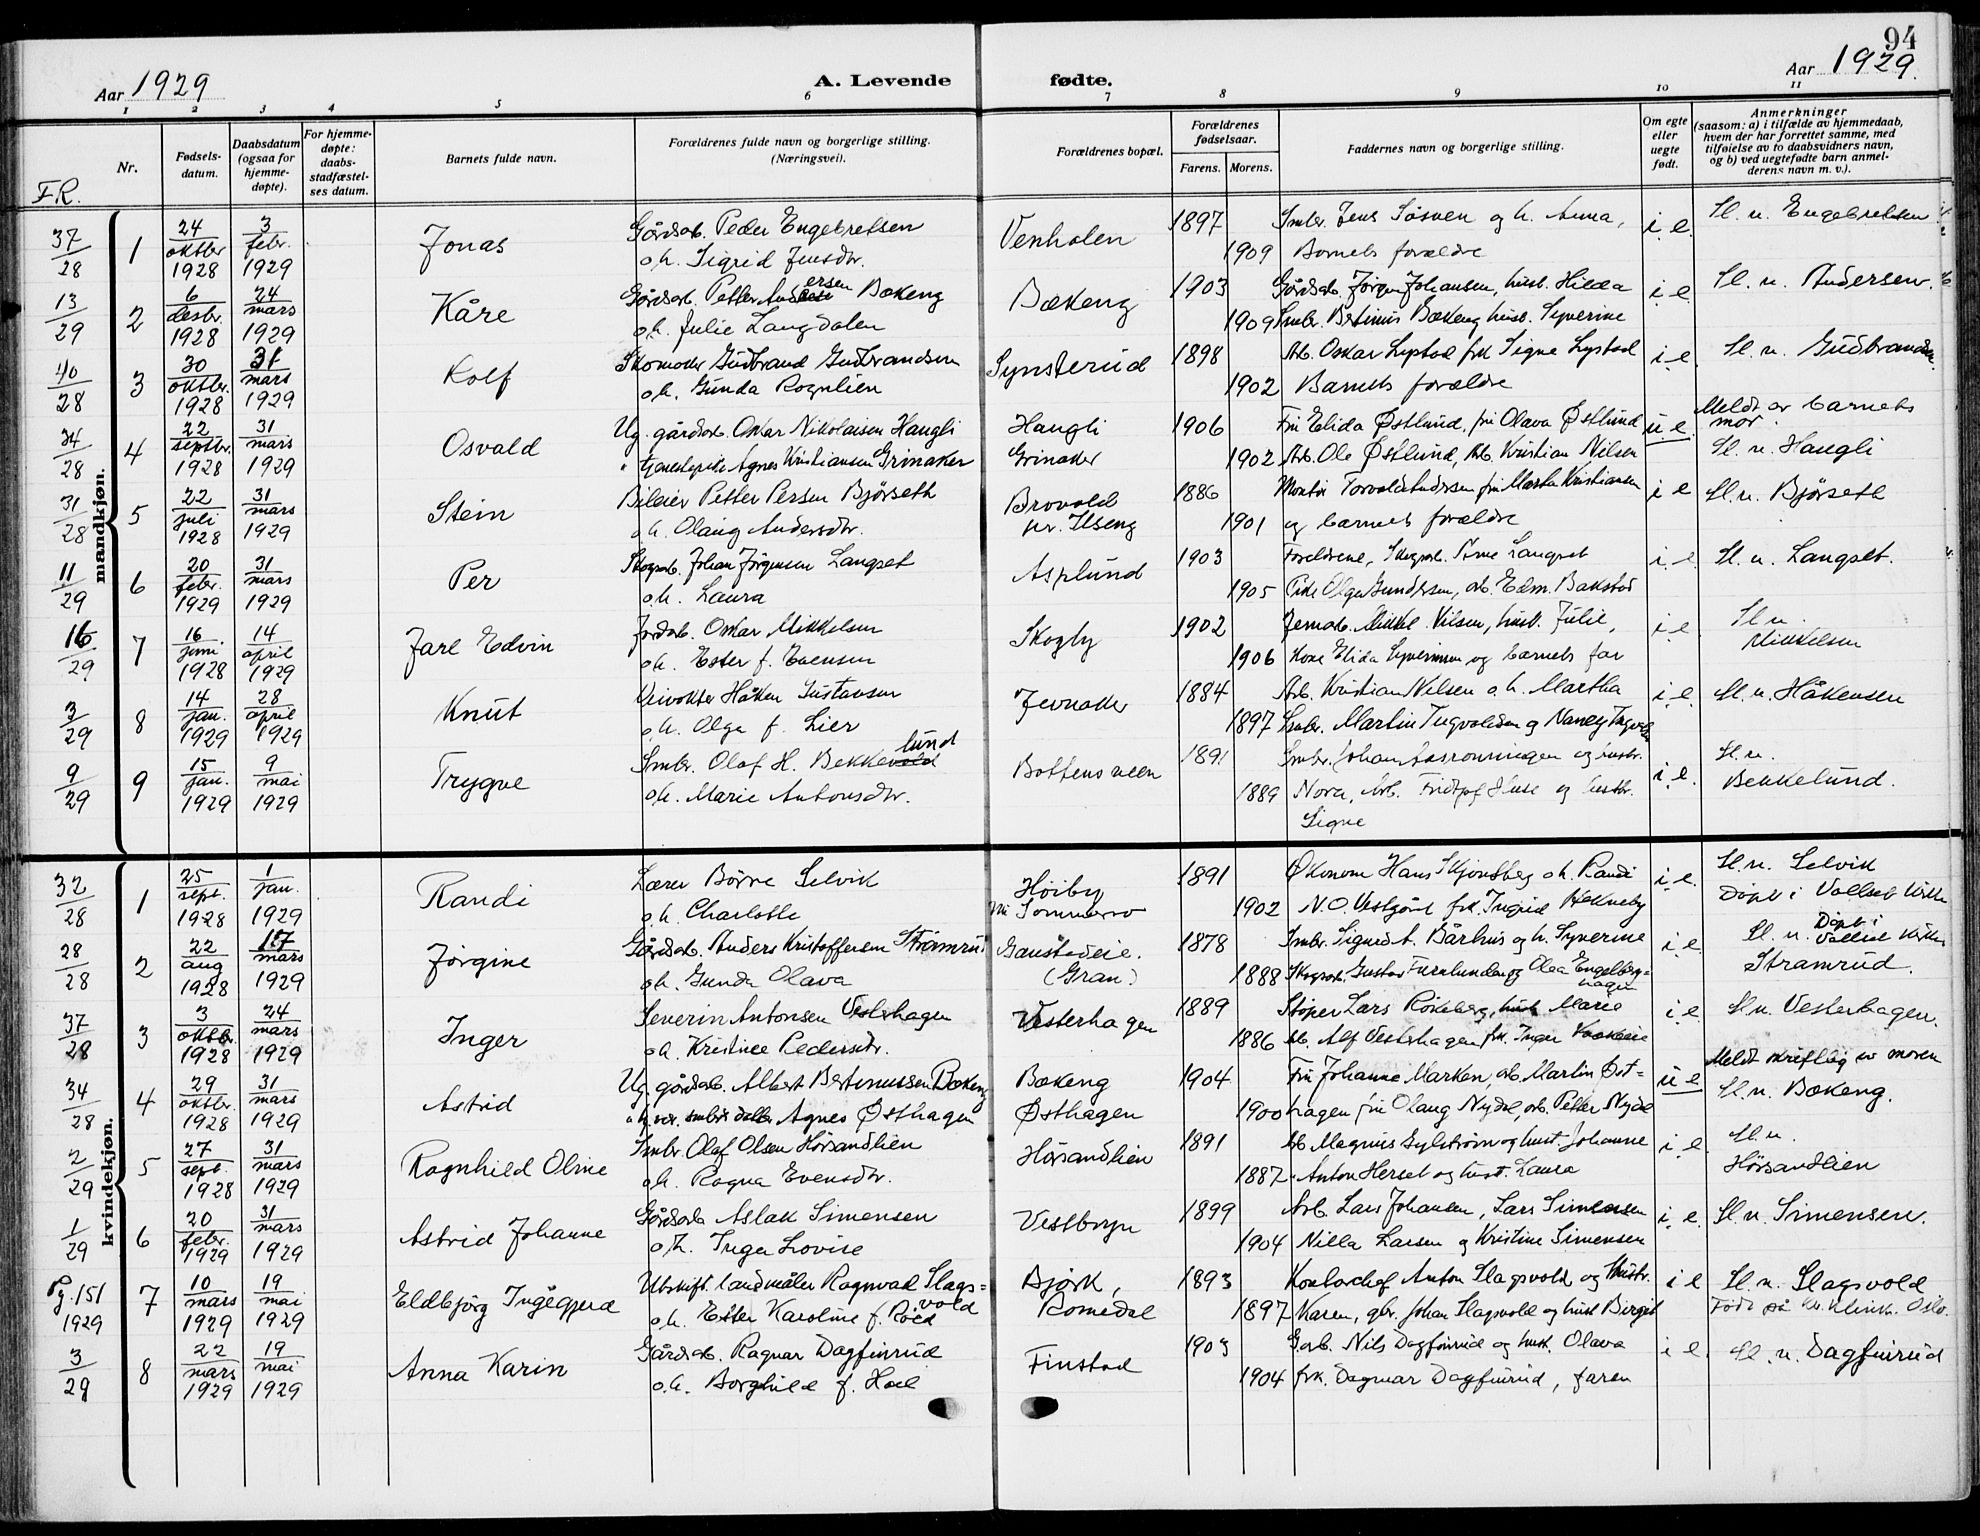 94
Aar 1929
A. Levende fødte.
Aar 1929.
1 2 3 4 5 6 7 8 9 10 11
Nr.
Fødsels-datum.
Daabsdatum (ogsaa for hjemme-døpte).
For hjemme-døpte: daabs-stadfæstel-ses datum.
Barnets fulde navn.
Forældrenes fulde navn og borgerlige stilling. (Næringsvei).
Forældrenes bopæl.
Forældrenes fødselsaar.
Farens. Morens.
Faddernes navn og borgerlige stilling.
Om egte eller uegte født.
Anmerkninger (saasom: a) i tilfælde av hjemmedaab, hvem der har forrettet samme, med tilføielse av to daabsvidners navn, og b) ved uegtefødte barn anmel-derens navn m. v.).
FR.
mandkjøn.
37/28 1 24/oktbr 1928 3/febr. 1929 Jonas Gårdsarb. Peder Engebretsen Venholen 1897 Smbr. Jens og h. Anna, i. e. Sl. n. Engebretsen
o.h. Sigrid Jensdtr. 1909 Barnets forældre
13/29 2 6/desbr. 1928 24/mars 1929 Kåre Gårdsarb. Petter Andersen Bækeng Bækeng 1903 Gårdsarb. Jørgen Johansen, hust. Hilda i. e. Sl. n. Andersen.
o.h. Julie Langdalen 1909 Smbr. Bertinius Bækeng hust. Syverine
40/28 3 30/oktbr. 1928 31/mars 1929 Rolf Skomaker Gudbrand Gudbrandsen Synsterud 1898 Arb. Oskar Lystad frk Signe Lystad i. e. Sl. n. Gudbrandsen.
o.h. Gunda Rognlien 1902 Barnets forældre
34/28 4 22/septbr. 1928 31/mars 1929 Osvald Ug. gårdsarb. Oskar Nikolaisen Haugli Haugli 1906 Fru Elida Østlund, fru Olava Østlund u. e. Meldt av barnets mor.
" tjenestepike Agnes Kristiansen Grinaker Grinaker 1902 Arb. Ole Østlund, Arb. Kristian Nilsen Sl. n. Haugli
31/28 5 22/juli 1928 31/mars 1929 Stein Bileier Petter Persen Bjørseth Brovold 1886 Montør Torvald Andersen fru Martha Kristiansen i e Sl. n. Bjørseth
o.h. Olaug Andersdtr. pr. Ilseng 1901 og barnets forældre
11/29 6 20/febr. 1929 31/mars 1929 Per Skogsarb. Johan Jørgensen Langset Asplund 1903 Foreldrene, Skogsarb. Arne Langset i. e. Sl. n. Langset.
o.h. Laura 1905 Pike Olga Gundersen, arb. Edm. Bakstad
16/29 7 16./juni 1928 14/april 1929 Jarl Edvin Jordarb. Oskar Mikkelsen Skogby 1902 Jernarb. Mikkel Nilsen, hust. Julie, i. e. Sl. n.
o.h. Ester f. Evensen 1906 Kone Elida Syversen og barnets far Mikkelsen
3/29 8 14/jan. 1929 28/april 1929 Knut Veivokter Håken Gustavsen Jevnaker 1884 Arb. Kristian Nilsen o. h. Martha i. e. Sl. n. Håkensen
o.h. Olga f. Lier 1897 Smbr. Martin Tugvaldsen og Nancy
9/29 9 15/jan. 1929 9/mai 1929 Trygve Smbr. Olaf H. Bekkelund Bottensveen 1891 Smbr. Johan og hustr. i. e. Sl. n.
o.h. Marie Antonsdtr. 1889 Nora, Arb. Fridtjof Huse og hustr. Bekkelund.
Signe
kvindekjøn.
32/28 1 25/sept. 1928 1/jan. 1929 Randi Lærer Børre Selvik Høiby 1891 Økonom Hans Skjønsberg o. h. Randi i. e. Sl. n. Selvik
o.h. Charlotte nu Sommerro 1902 N. O. Vestgård frk. Ingrid Hekneby Døpt i Vallset kirke
28/28 2 22/aug 1928 17/mars 1929 Jørgine Gårdsarb. Anders Kristoffersen Strømrud Gaustadeie. 1878 Smbr. Sigurd A. Bårhus og h. Syverine i. e. Sl. n. Døpt i Vallset kirke
o.h. Gunda Olava (Gran) 1888 Skogsarb. Gustav Furulunden og Olea Engelberg-hagen Strømrud.
37/28 3 3/oktbr. 1928 24/mars 1929 Inger Severin Antonsen Vesterhagen Vesterhagen 1889 Støper Lars Rokeberg, hust Marie i. e. Sl. n. Vesterhagen.
o.h. Kristine Pedersdtr. 1886 Arb. Alf Vesterhagen frk. Inger
34/28 4 29/oktbr. 1928 31/mars 1929 Astrid Ug. gårdsarb. Albert Bertinussen Bækeng Bækeng 1904 Fru Johanne Marken, arb. Martin Øst- u. e Meldt skriftlig av moren
Agnes Østhagen Østhagen 1900 hagen fru Olaug Nydal, arb. Petter Nydal Sl. n. Bækeng.
2/29 5 27/sept. 1928 31/mars 1929 Ragnhild Oline Smbr. Olaf Olsen Hørsandlien Hørsandlien 1891 Arb. Magnus Gylstrøm og hust. Johanne i. e. Sl. n.
o.h. Ragna Evensdtr. 1887 " Anton Herset og hust. Laura Hørsandlien
1/29 6 20/febr. 1929 31/mars 1929 Astrid Johanne Gårdsarb. Aslak Simensen Vestbygn 1899 Arb. Lars Johansen, Lars Simensen i. e. Sl. n. Simensen.
o.h. Inga Lovise 1904 Nilla Larsen og Kristine Simensen
Pg. 151 1929 7 10/mars 1929 19/mai 1929 Eldbjørg Ingegjerd Utskift. landmåler Ragnvald Slags-vold Bjørk, 1893 Kontorchef Anton Slagsvold og Hustr. i e Sl. n. Slagsvold
o.h. Ester Karoline f. Roed Romedal 1897 Karen, gbr. Johan Slagsvold og hust Birgit Født på Kv.klinik. Oslo.
3/29 8 22/mars 1929 19/mai 1929 Anna Karin Gårdsarb. Ragnar Dagfinrud Finstad 1903 Garb. Nils Dagfinrud og hust. Olava i e. Sl. n. Dagfinrud
o.h. Borghild f. Hoel 1904 frk. Dagmar Dagfinrud, faren